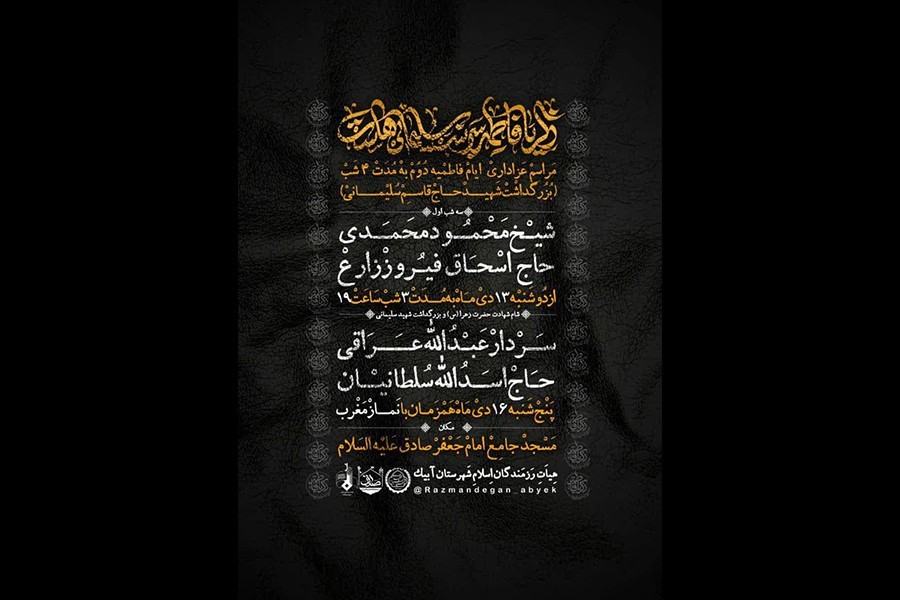 یا فاطمه سربند سلیمانی هاست
مراسم عزاداری ایام فاطمیه دوم به مدت ۴ شب
(بزرگداشت شهید حاج قاسم سلیمانی)
سه شب اول
شیخ محمود محمدی
حاج اسحاق فیروززارع
از دوشنبه ۱۳ دی ماه به مدت ۳ شب ساعت ۱۹
شام شهادت حضرت زهرا (س) و بزرگداشت شهید سلیمانی
سردار عبدالله عراقی
حاج اسدالله سلطانیان
پنج شنبه ۱۶ دی ماه همزمان با نماز مغرب
مکان
مسجد جامع امام جعفر صادق علیه السلام
هیأت رزمندگان اسلام شهرستان آبیک
@Razmandegan_abyek